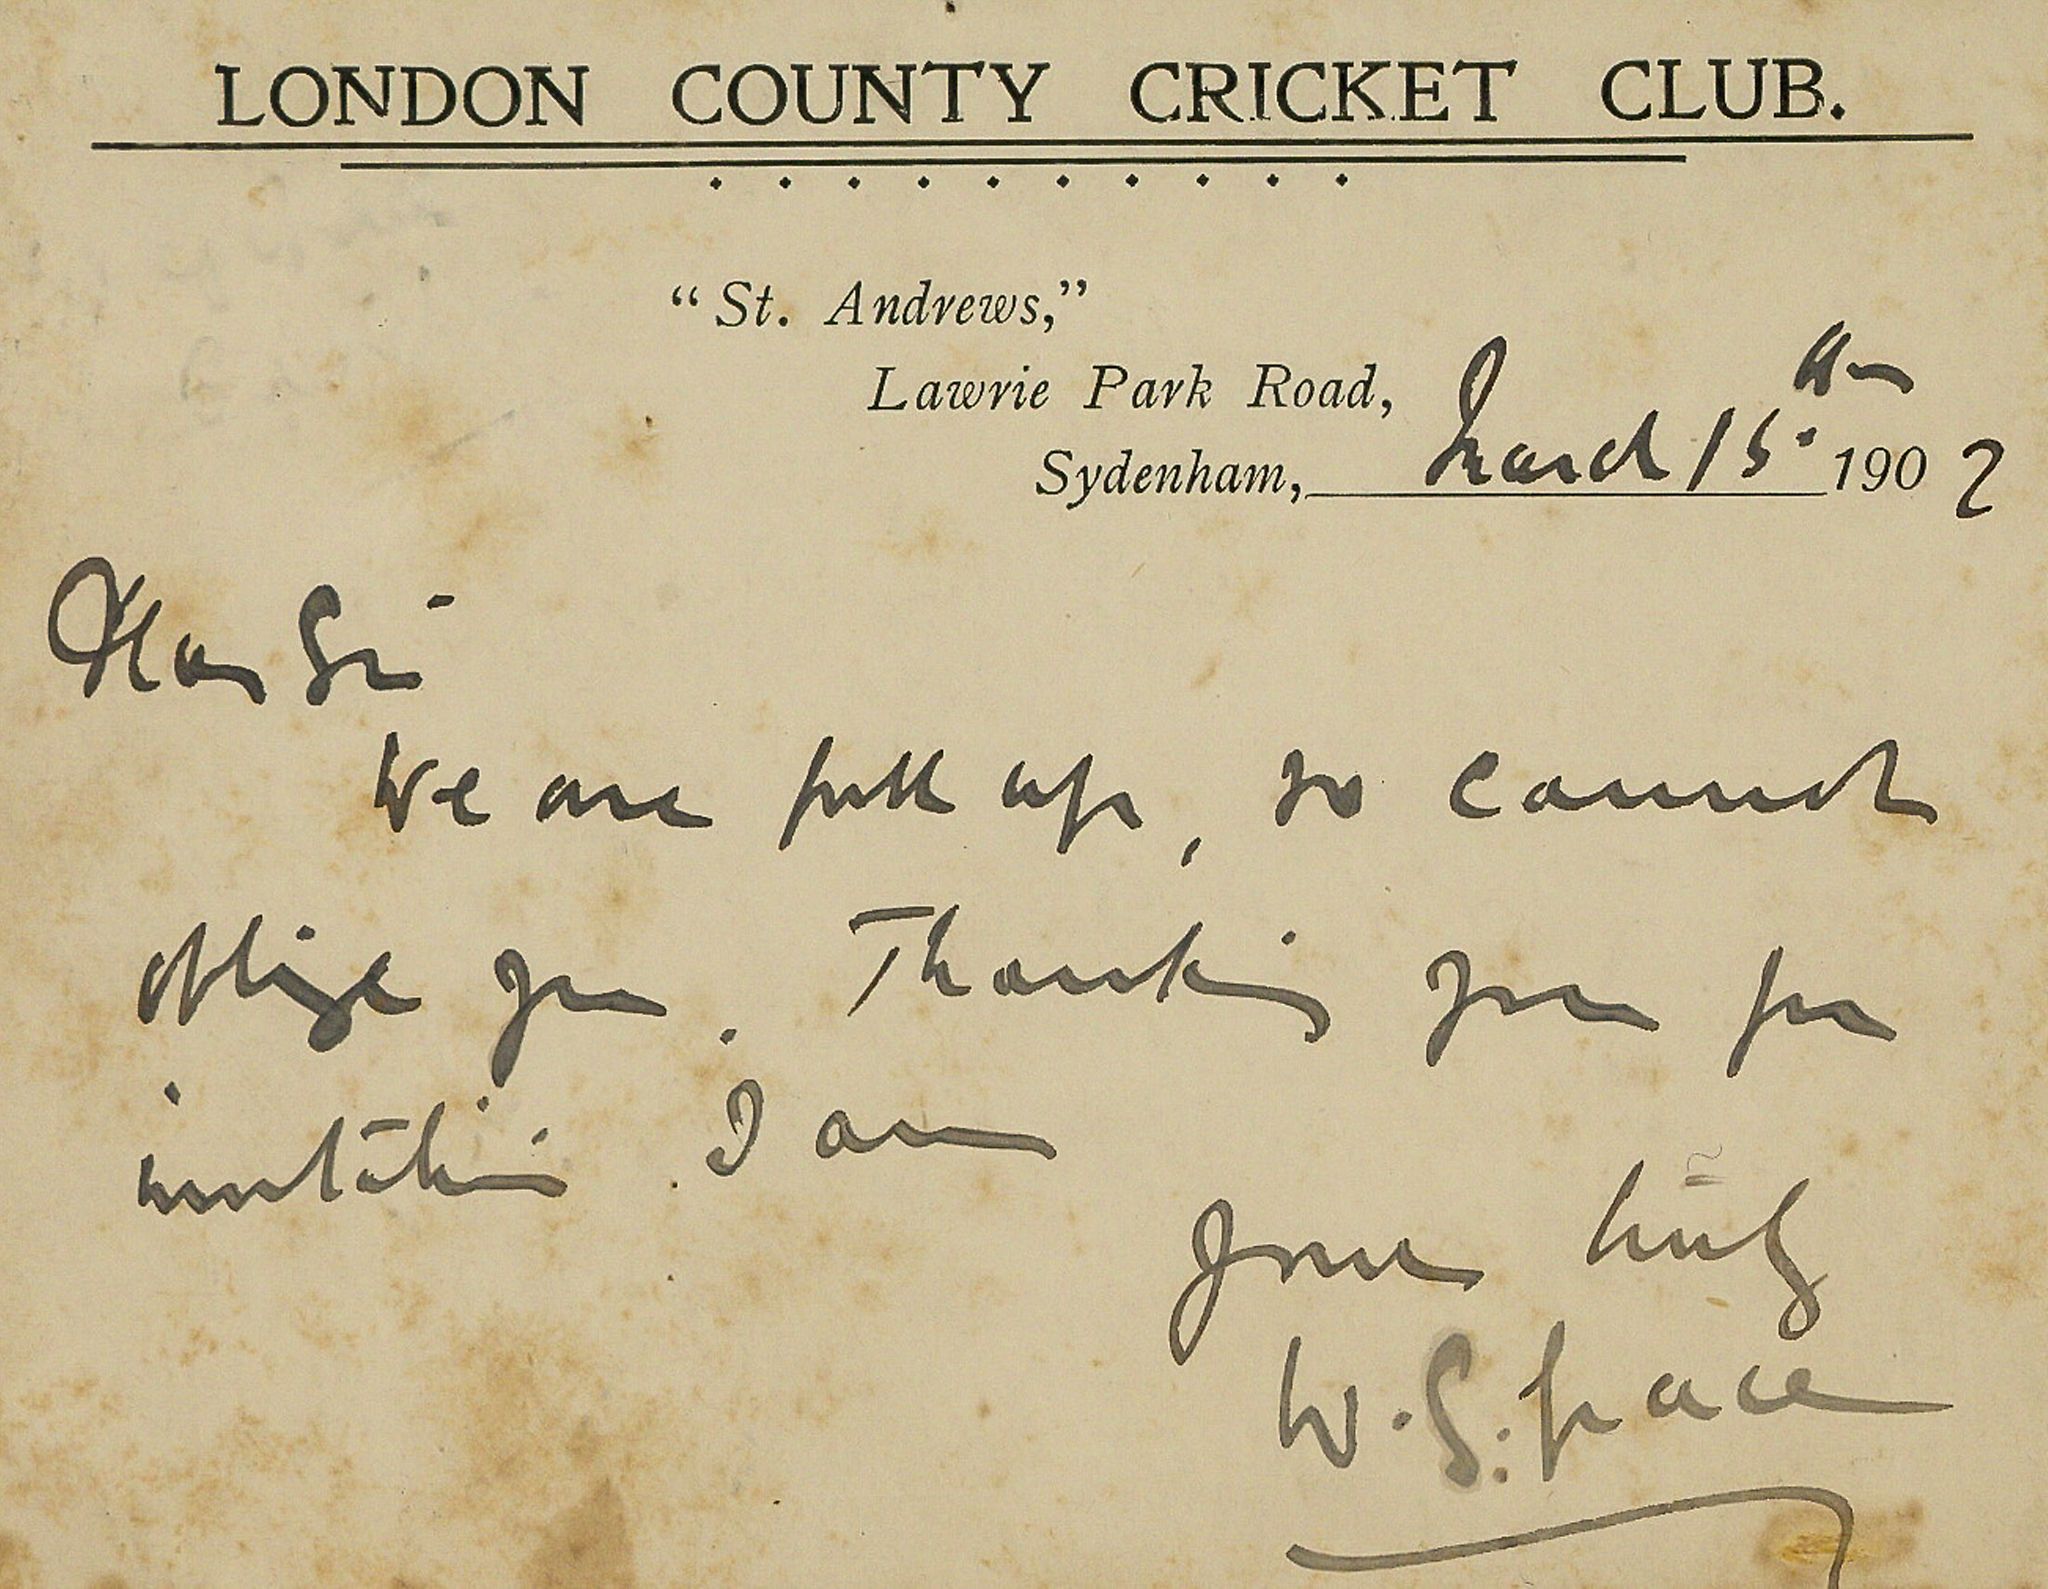 LONDON COUNTY CRICKET CLUB.
"St. Andrews,"
Lawrie Park Road,
Sydenham, March 15th 1902
Dear Sir
We are full up, so cannot
oblige you. Thanking you for
invitation I am
Yours truly
W. G. Grace